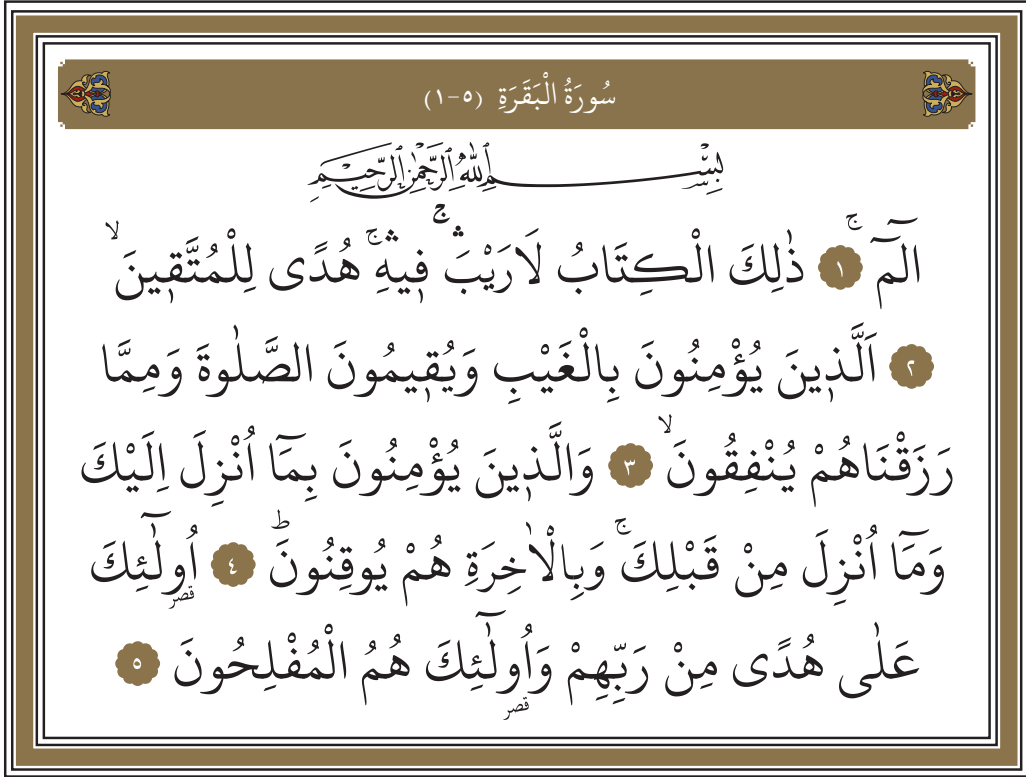 سُورَةُ الْبَقَرَةِ (١-٥)
بِسْمِ اللّٰهِ الرَّحْمٰنِ الرَّحِيمِ
الٓمٓ ۚ ﴿١﴾ ذٰلِكَ الْكِتَابُ لَارَيْبَ ۛۚ فٖيهِ ۛۚ هُدًى لِلْمُتَّقٖينَ ۙ
﴿٢﴾ اَلَّذٖينَ يُؤْمِنُونَ بِالْغَيْبِ وَيُقٖيمُونَ الصَّلٰوةَ وَمِمَّا
رَزَقْنَاهُمْ يُنْفِقُونَ ۙ ﴿٣﴾ وَالَّذٖينَ يُؤْمِنُونَ بِمَٓا اُنْزِلَ اِلَيْكَ
وَمَٓا اُنْزِلَ مِنْ قَبْلِكَ ۚ وَبِالْاٰخِرَةِ هُمْ يُوقِنُونَ ؕ ﴿٤﴾ اُولٰٓئِكَ
قصر
عَلٰى هُدًى مِنْ رَبِّهِمْ وَاُولٰٓئِكَ هُمُ الْمُفْلِحُونَ ﴿٥﴾
قصر